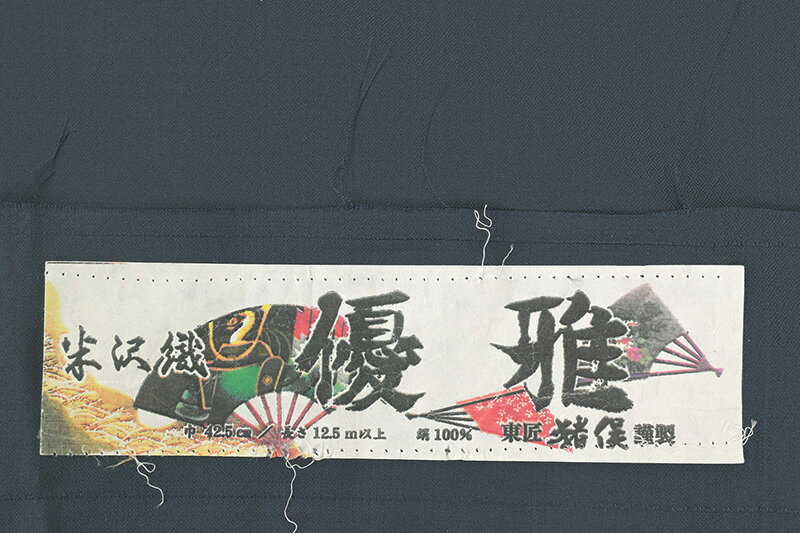 米沢織 優雅
巾 42.5cm／長さ 12.5m以上 絹100% 東匠 猪俣 謹製